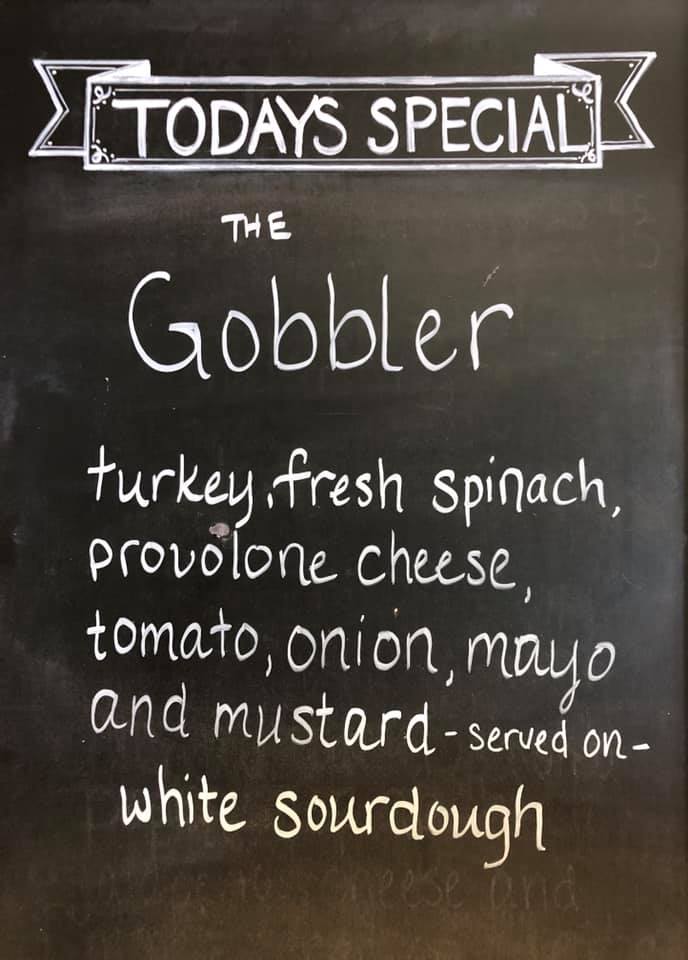 TODAYS SPECIAL
THE
Gobbler
turkey, fresh spinach,
provolone cheese,
tomato, onion, mayo
and mustard - served on -
white sourdough
cheese and